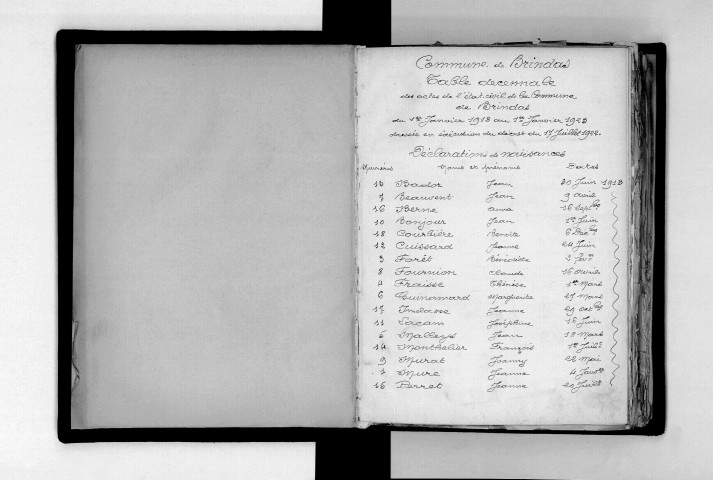 Commune de Brindas
Table decennale
des actes de l'état civil de la Commune
de Brindas
du 1er Janvier 1913 au 1er Janvier 1923
dressée en exécution du décret du 17 Juillet 1902
Déclarations de naissances
Numéros Noms et prénoms Dates
Jean 20 Juin 1913
7 Beauvent Jean 9 avril
16 Berne 16 Septbre
10 Bonjour Jean 1er Juin
18 Courbière Benoite 6 Dec
12 Cuissard Jeanne 24 Juin
3 Forêt Bénédicte
8 Fournion Claude 16 avril
4 Fraisse Thérèse 1er Mars
6 Guinormard Marguerite 27 Mars
17 Jeanne 29 Octbre
11 Lacam Joséphine 18 Juin
5 Malleys Jean 13 Mars
14 Monthelier François 1er Juillt
9 Murat Joanny 22 Mai
1 Mure Jeanne 4 Janv
Perret Jeanne 20 Juillt